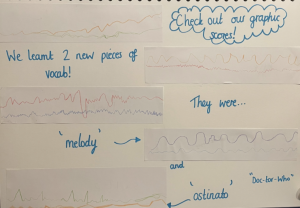 Check out our graphic
scores!
We learnt 2 new pieces of
vocab!
They were...
'melody'
and
'ostinato'
"Doc-tor-Who"